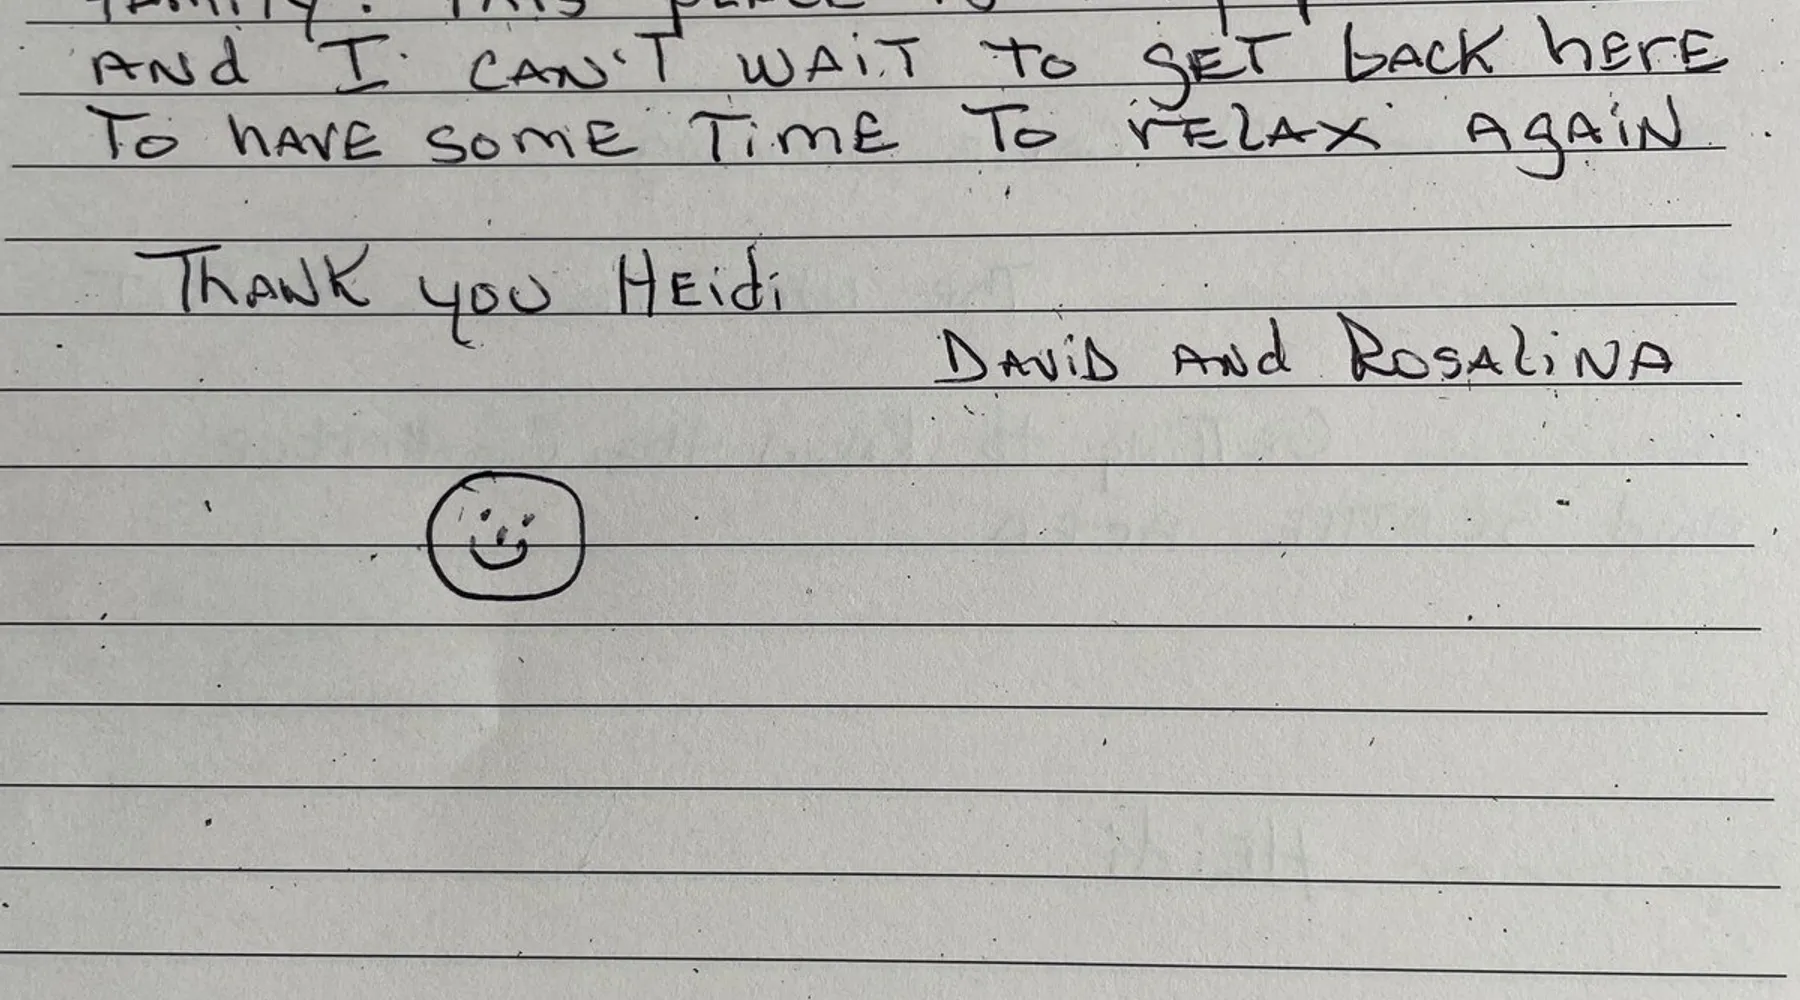 family. This place is
AND I CAN'T WAiT To gET bACK hErE
To hAVE SomE TimE To rELAX AgAiN.
ThANK you HEidi
DAViD AND RosALiNA